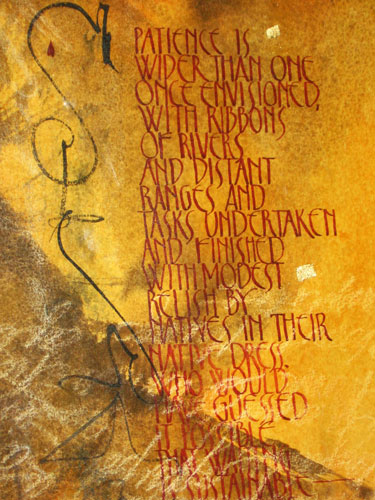 PATIENCE IS
WIDER THAN ONE
ONCE ENVISIONED,
WITH RIBBONS
OF RIVERS
AND DISTANT
RANGES AND
TASKS UNDERTAKEN
AND FINISHED
WITH MODEST
RELISH BY
NATIVES IN THEIR
NATIVE DRESS.
WHO WOULD
HAVE GUESSED
IT POSSIBLE
THAT WAITING
IS SUSTAINABLE—